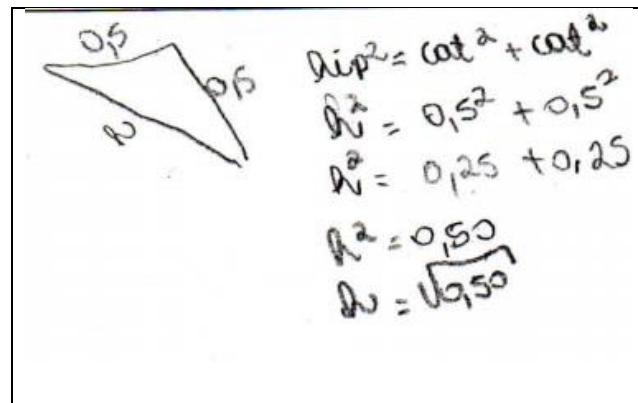 0,5
0,5
h
hip² = cat² + cat²
h² = 0,5² + 0,5²
h² = 0,25 + 0,25
h² = 0,50
h = √0,50